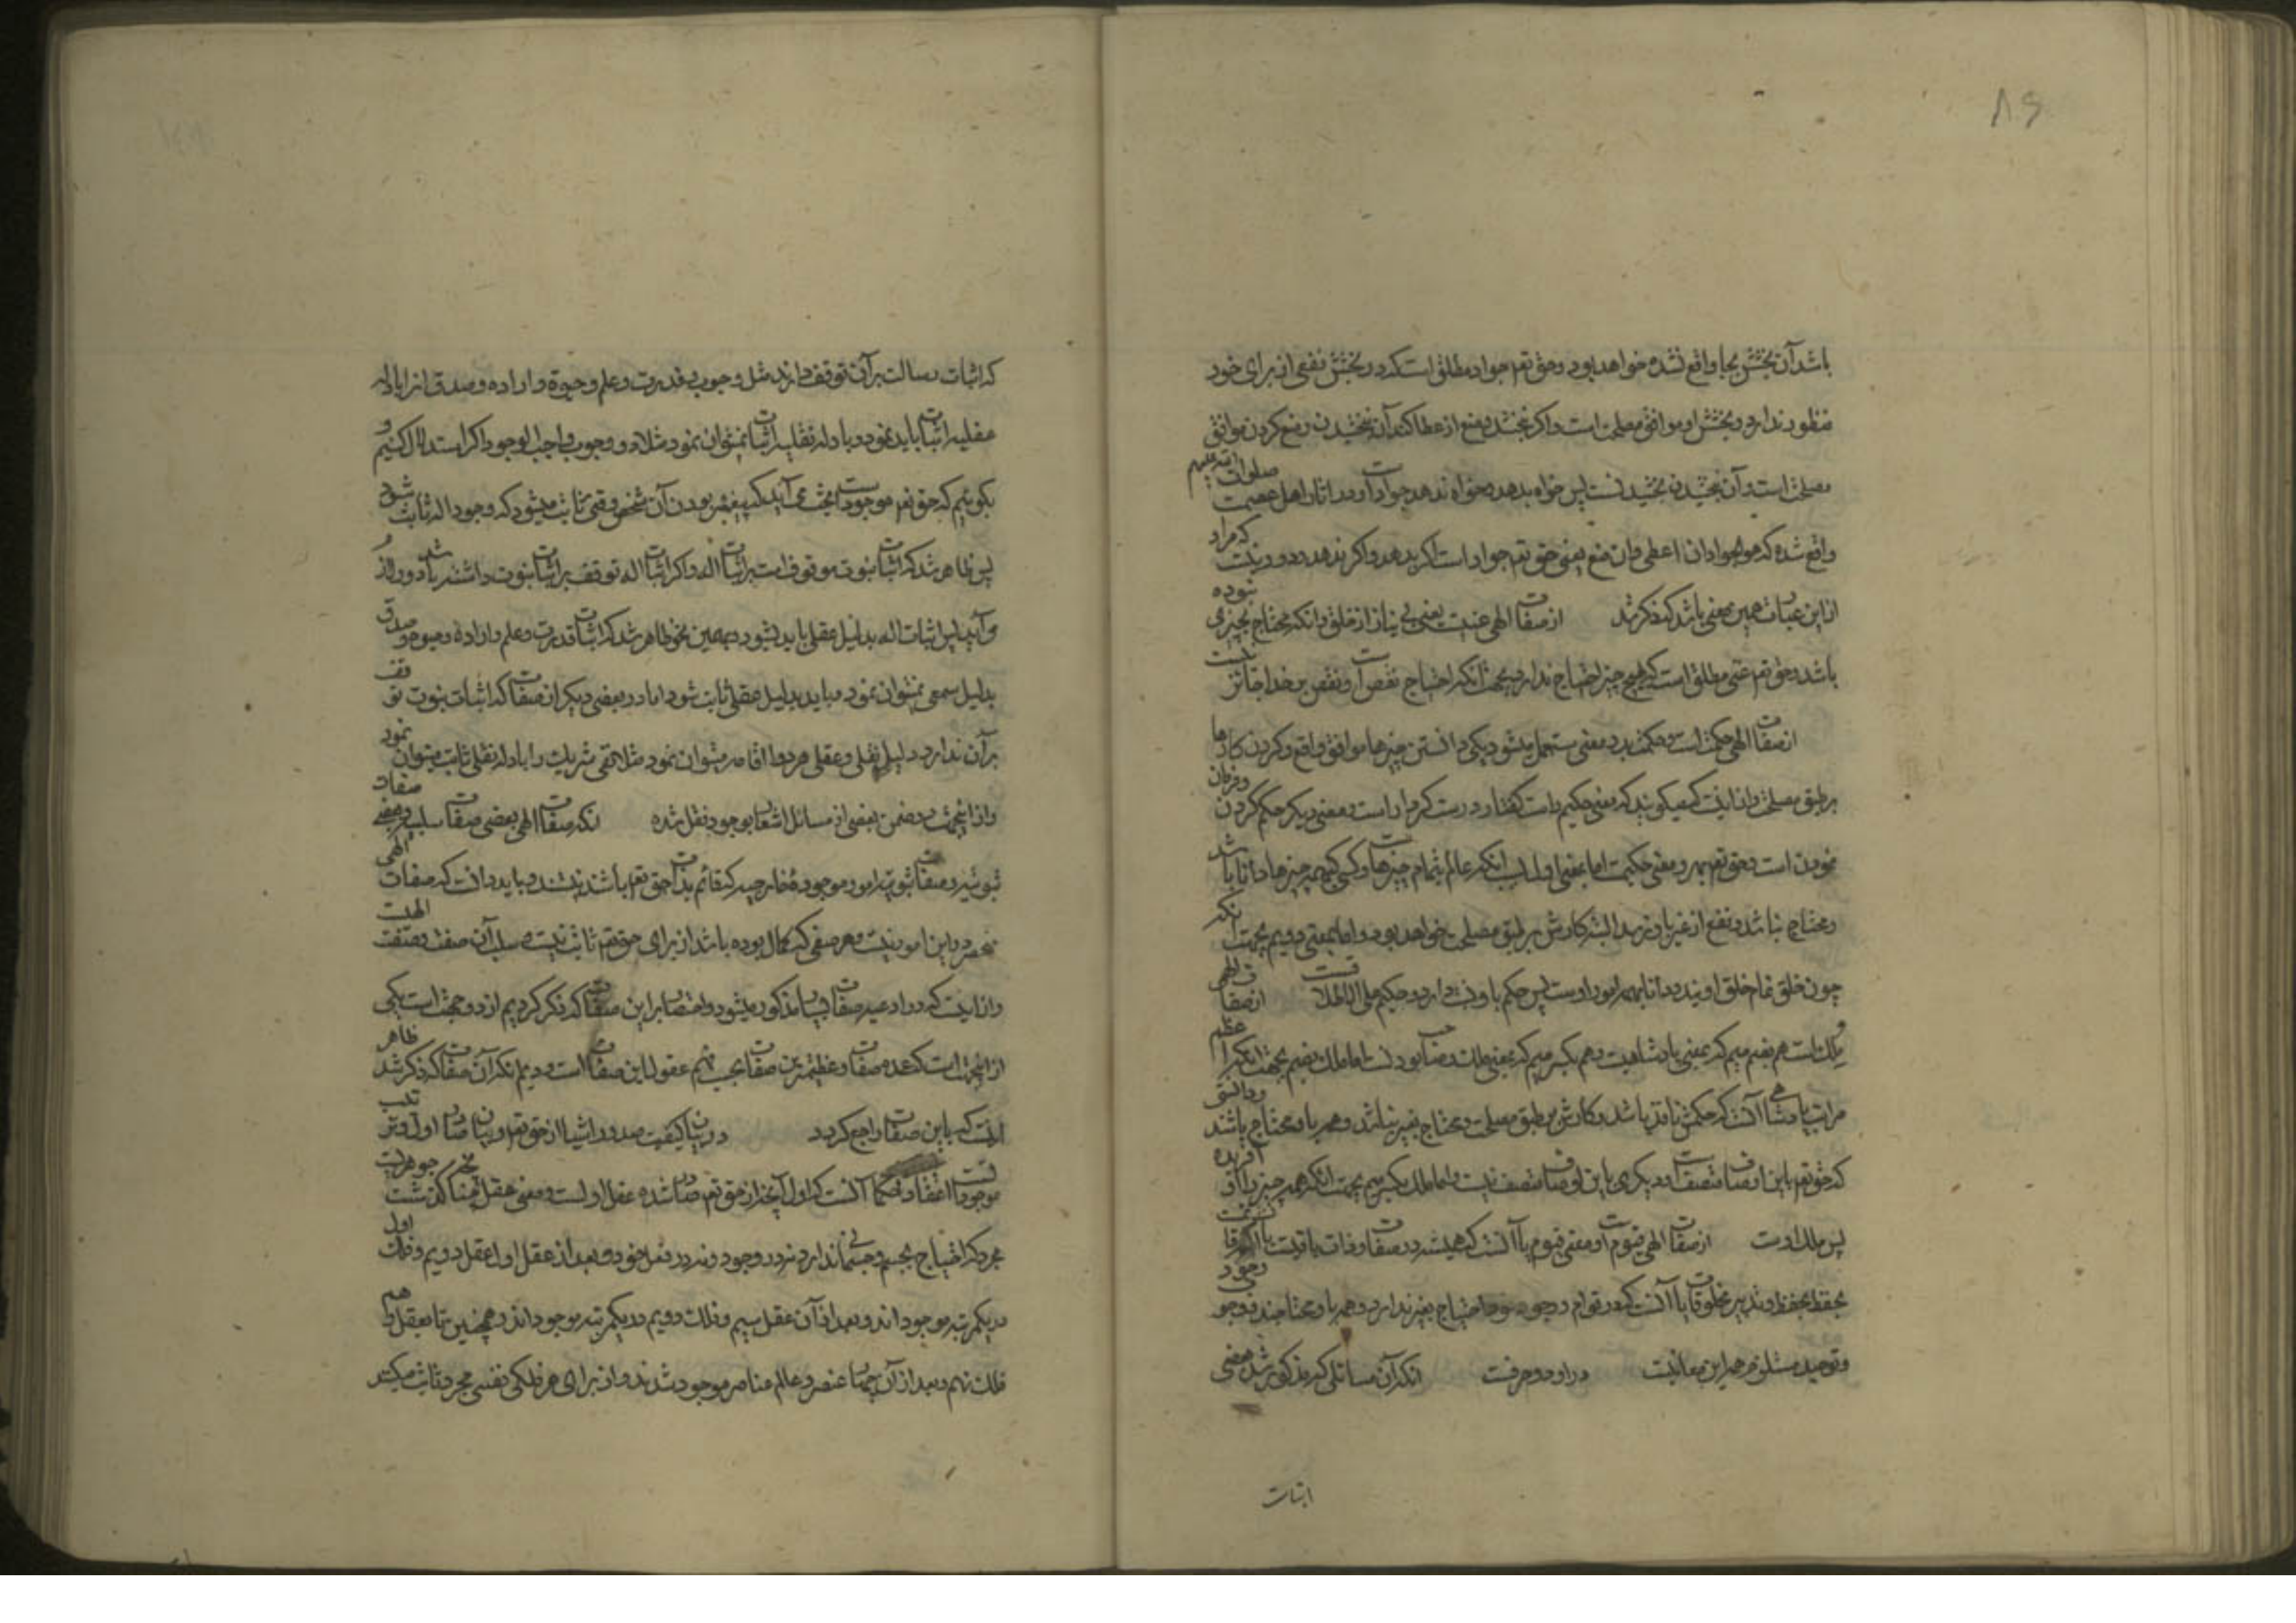 ٨٦
باشد آن بخشش بجا واقع نشده خواهد بود و حق تعم جواد مطلق است که در بخشش نفعی از برای خود
منظور ندارد و بخشش او موافق مصلحت است و اگر نبخشد و منع از عطا کند آن نبخشیدن و منع کردن موافق
مصلحت است و آن نبخشیدن بخشیدنست پس خواه بدهد و خواه ندهد جواد است و در آثار اهل عصمت صلوات الله علیهم
واقع شده که هو الجواد ان اعطی و ان منع یعنی حق تعم جواد است اگر بدهد و اگر ندهد و دور نیست که مراد
از این عبارت همین معنی باشد که ذکر شد از صفات الهی غنیست یعنی بی نیاز از خلق و آنکه محتاج بچیزی نبوده
باشد و حق تعم غنی مطلق است که بهیچ چیز احتیاج ندارد بجهت آنکه احتیاج نقص است و نقص بر خدا جائز نیست
از صفات الهی حکمت است و حکمت بدو معنی مستعمل میشود یکی دانستن چیزها موافق واقع و کردن کارها
بر طبق مصلحت و از اینست که میگویند که معنی حکیم راست گفتار و درست کردار است و معنی دیگر حکم کردن و فرمان
نمودن است و حق تعم بهر دو معنی حکیمست اما بمعنی اول از آنکه عالم بتمام چیزهاست و کسی که بهمه چیزها دانا باشد
و محتاج نباشد و نفع از غیر باو نرسد البته کارش بر طبق مصلحت خواهد بود و اما بمعنی دویم بجهت آنکه
چون خلق تمام خلق اویند و دانا بهمه امور اوست پس حکم باو نسبت دارد و حکیم علی الاطلاق اوست از صفات الهی
ملک است هم بضم میم که بمعنی پادشاهیست و هم بکسر میم که بمعنی ملک و صاحب بودنست اما ملک بضم بجهت آنکه اعظم
مراتب پادشاهی آنست که حکمش نافذ باشد و کارش بر طبق مصلحت و محتاج بغیر نباشد و همه باو محتاج باشند و دانستی
که حق تعم باین اوصاف متصف است و دیگری باین اوصاف متصف نیست و اما ملک بکسر میم بجهت آنکه همه چیز را او آفریده
پس ملک اوست از صفات الهی قیوم است و معنی قیوم یا آنست که همیشه در صفات و ذات باقیست یا آنکه
بحفظ و تدبیر مخلوقات یا آنست که در قوام و وجود خود احتیاج بغیر ندارد و همه باو محتاجند و وجود
و توحید مستلزم همه این معانیست در او دو حرفست آنکه آن مسائلی که مذکور شد بعضی
اثبات
که اثبات رسالت بر آن توقف دارند مثل وجوب و قدرت و علم و حیوة و اراده و صدق آنرا بادله
عقلیه اثبات باید نمود و بادله نقلیه اثبات نمیتوان نمود مثلا در وجوب واجب الوجود اگر استدلال کنیم و
بگوئیم که حق تعم موجود است بجهت آنکه پیغمبر بودن آن شخص وقتی ثابت میشود که وجود اله ثابت شود
پس ظاهر شد که اثبات نبوت موقوفست بر اثبات اله و اگر اثبات اله توقف بر اثبات نبوت داشته باشد دور لازم
می آید پس اثبات اله بدلیل عقلی باید بشود و بهمین نحو ظاهر شد که اثبات قدرت و علم و اراده و حیوة و صدق
بدلیل سمعی نمیتوان نمود و باید بدلیل عقلی ثابت شود اما در بعضی دیگر از صفات که اثبات نبوت توقف
بر آن ندارد دلیل نقلی و عقلی هر دو اقامه میتوان نمود مثلا نفی شریک را بادله نقلی ثابت میتوان نمود
و از اینجهت در ضمن بعضی از مسائل اشعار بوجود نقل شده آنکه صفات الهی بعضی صفات سلبیه و بعضی صفات
ثبوتیه و صفات ثبوتیه امور موجوده خارجیه که قائم بذات حق تعم باشند نیستند و باید دانست که صفات الهی
منحصر در این امور نیست و هر صفتی که کمال بوده باشد از برای حق تعم ثابتست و سلب آن صفت و منقصت
و از اینست که در ادعیه صفات بسیار مذکور میشود و اختصار بر این صفات که ذکر کردیم از دو جهت است یکی
از اینجهت است که عمده صفات و عظیمترین صفات بحسب فهم عقول این صفات است و دویم آنکه آن صفات که ذکر شد ظاهر
اینست که باین صفات راجع گردد در بیان کیفیت صدور اشیا از حق تعم و بیان صادر اول و ترتیب
موجودات اعتقاد حکما آنست که اول آنچه از حق تعم صادر شده عقل اولست و معنی عقل چنانکه گذشت جوهریست
مجرد که احتیاج بجسم و جسمانی ندارد نه در وجود و نه در فعل خود و بعد از عقل اول عقل دویم و فلک اول
در یکمرتبه موجود اند و بعد از آن عقل سیم و فلک دویم در یکمرتبه موجود اند و همچنین تا بعقل دهم و
فلک نهم و بعد از آن عنصر و عالم عناصر موجود شدند و از برای هر فلکی نفسی مجرد ثابت میکنند